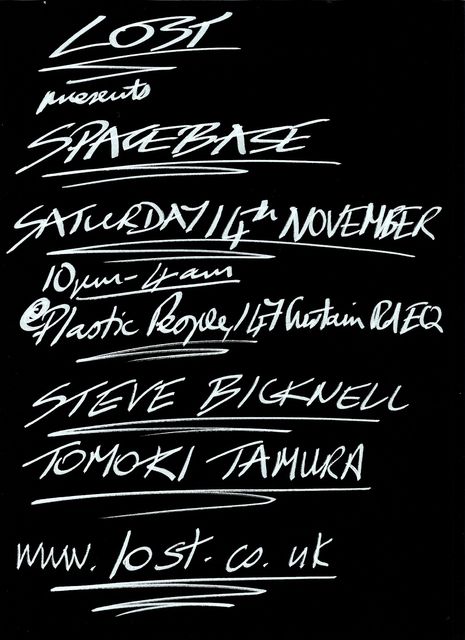 LOST
presents
SPACEBASE
SATURDAY 14th NOVEMBER
10pm-4am
@Plastic People, 147 Curtain Rd EC2
STEVE BICKNELL
TOMOKI TAMURA
www.lost.co.uk